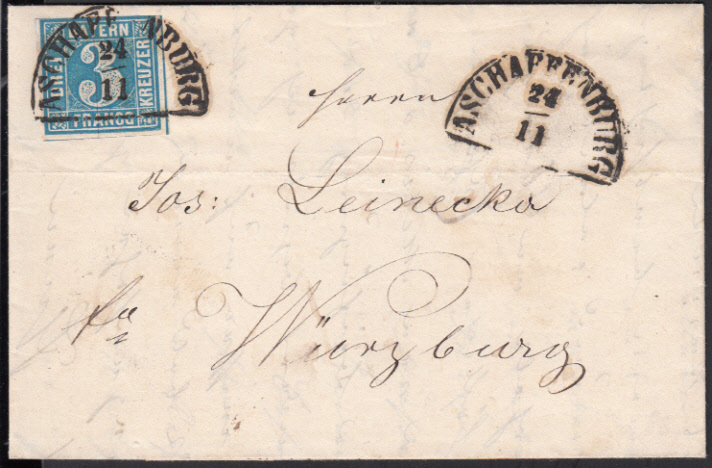 BAYERN
DREI
3
KREUZER
FRANCO
ASCHAFFENBURG
24
11
ASCHAFFENBURG
24
11
Herrn
Jos: Leinecka
fa
Würzburg